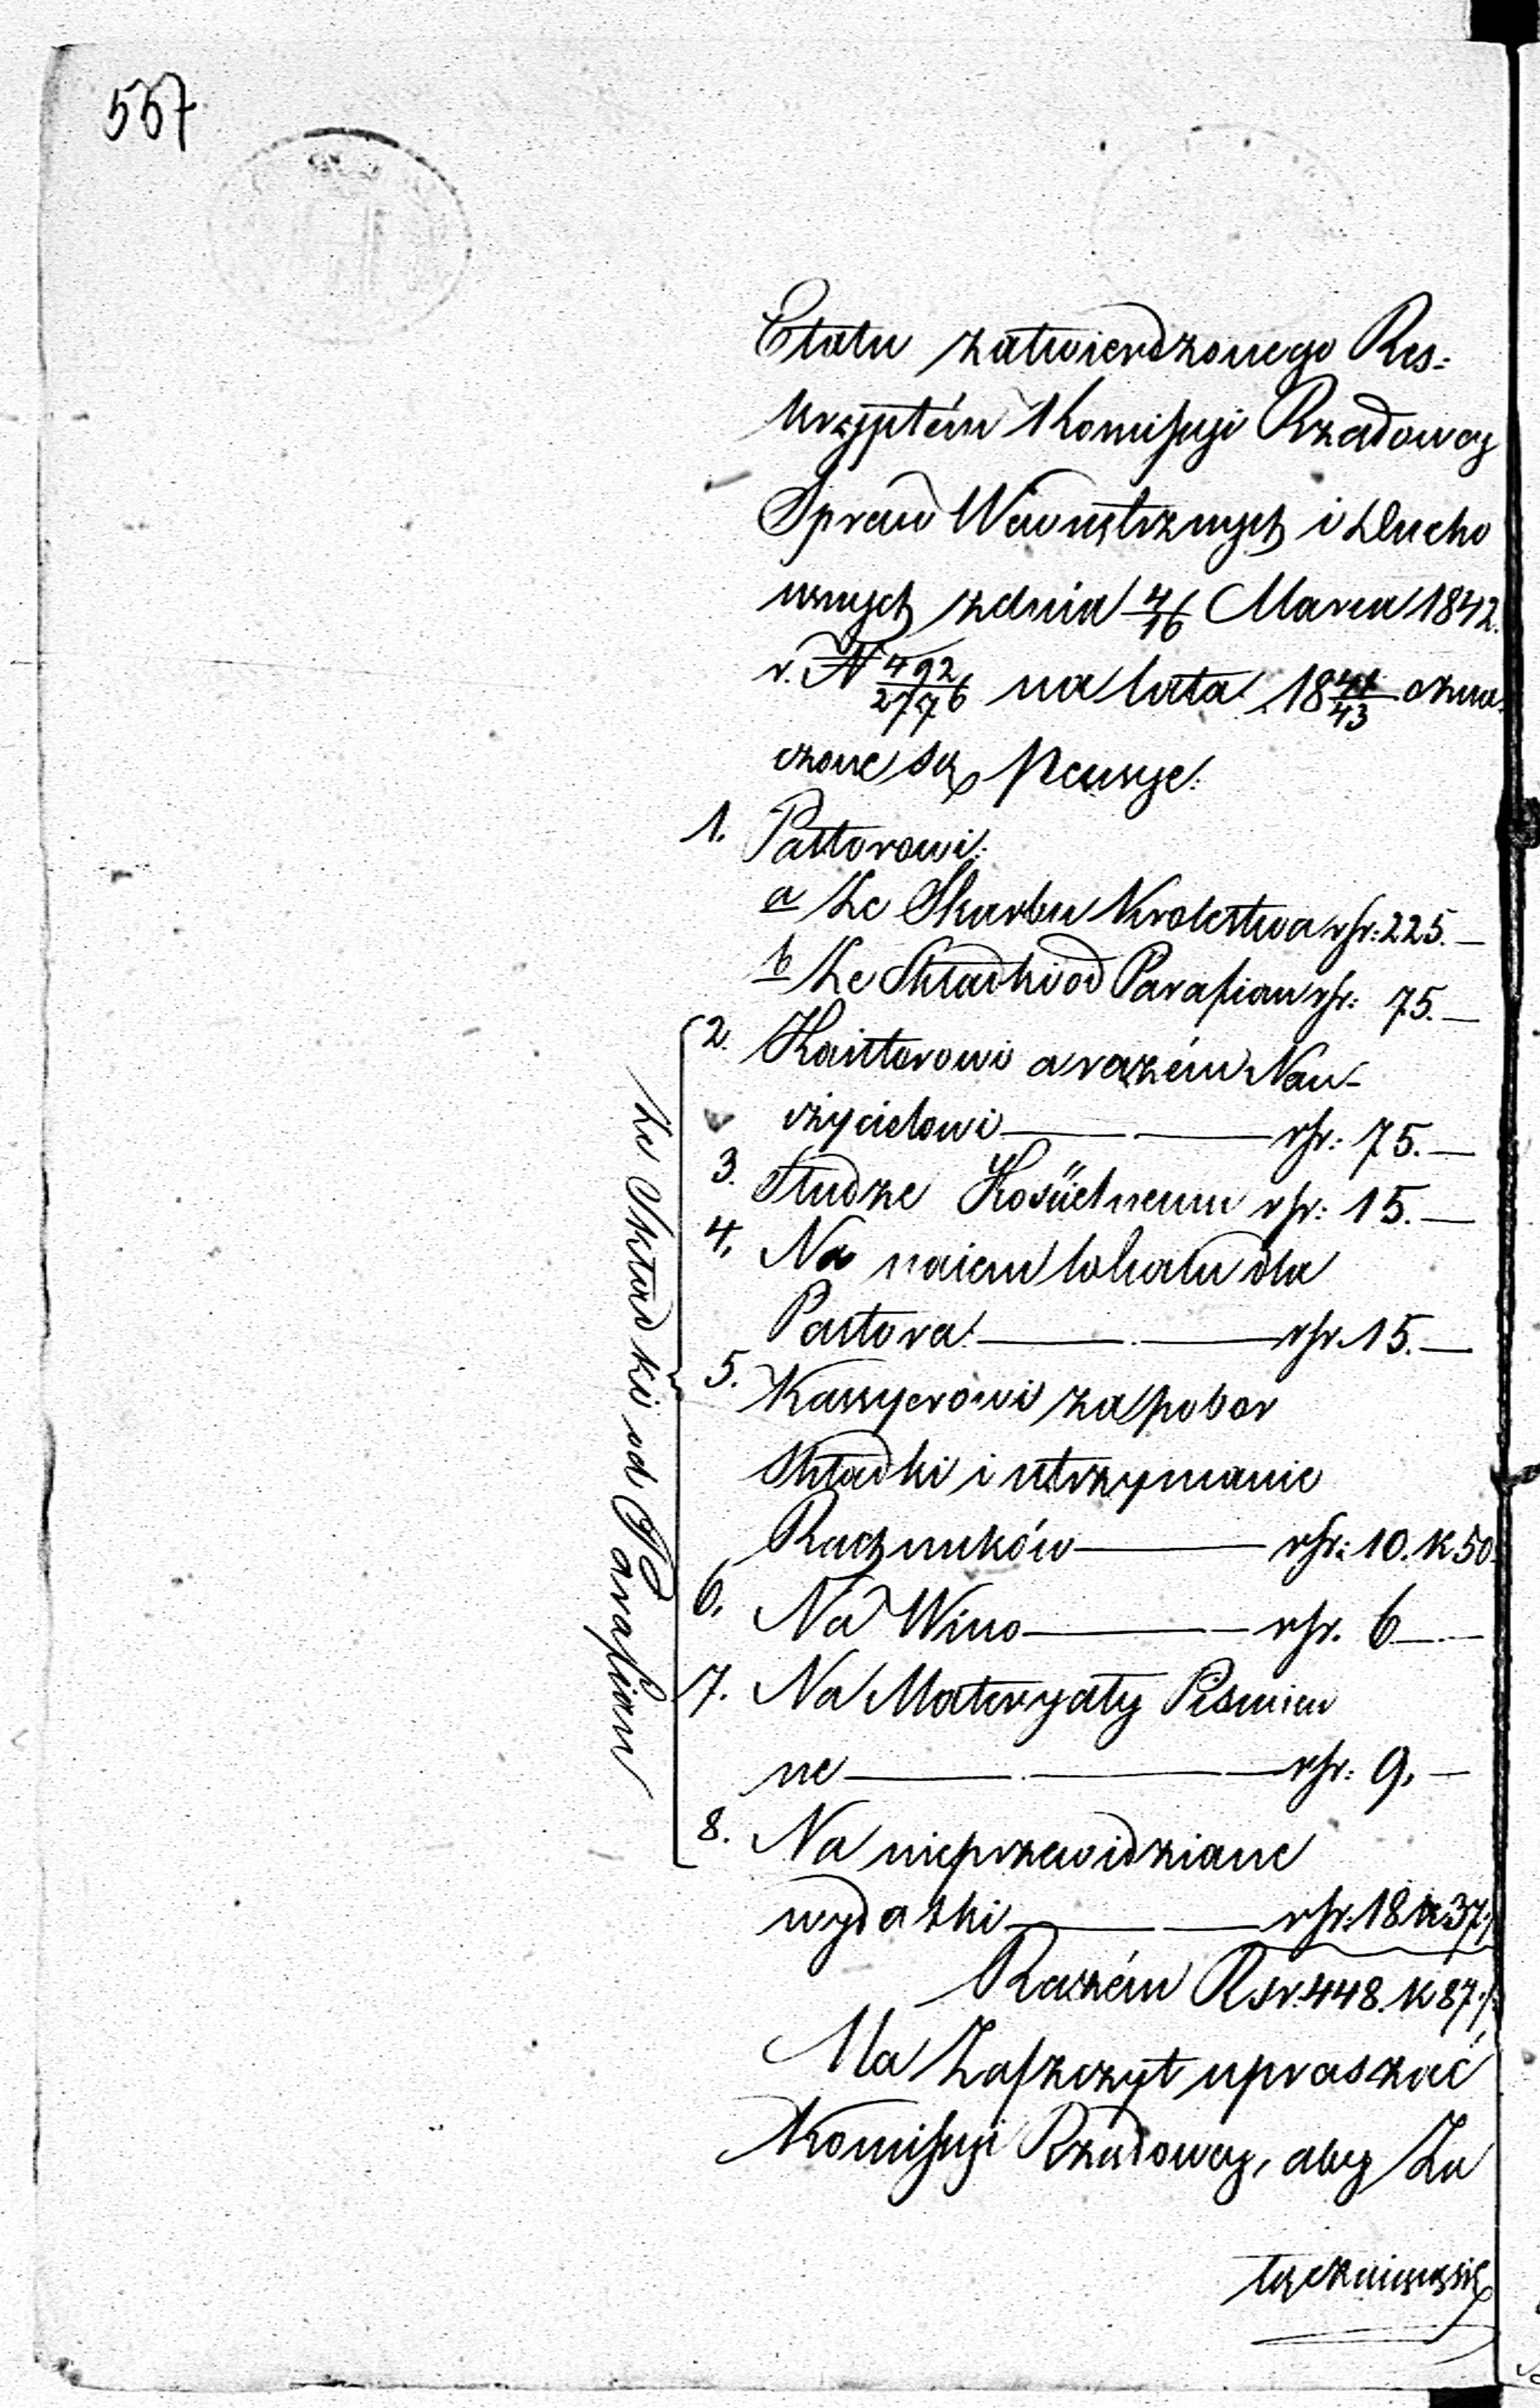 557
Etatu zatwierdzonego Res=
kryptém Komissyi Rządowey
Spraw Wewnętrznych i Ducho
wnych z dnia 4/16 Marca 1842.
r. N 492/2776 na lata 18 41/43 ozna=
czone są Pensye:
1. Pastorowi:
a Ze Skarbu Krolestwa rsr: 225.—
b Ze Składki od Parafian rsr: 75.—
2. Kantorowi a razém Nau-
czycielowi — — rsr: 75.—
3. Słudze Kościelnemu rsr: 15.—
4. Na naiem lokalu dla
Pastora — — rsr. 15.—
5. Kassyerowi za pobor
Składki i utrzymanie
Rachunków — rsr: 10. k 50.
6. Na Wino — — rsr. 6 —
7. Na Materyały Piśmien
ne — — rsr: 9. —
8. Na nieprzewidziane
wydatki — — rsr: 18 k 37./
Ze Składki od Parafian
Razém Rsr. 448. k 87./.
Ma Zaszczyt upraszać
Komissyi Rządowey, aby Za
łączaiącą się